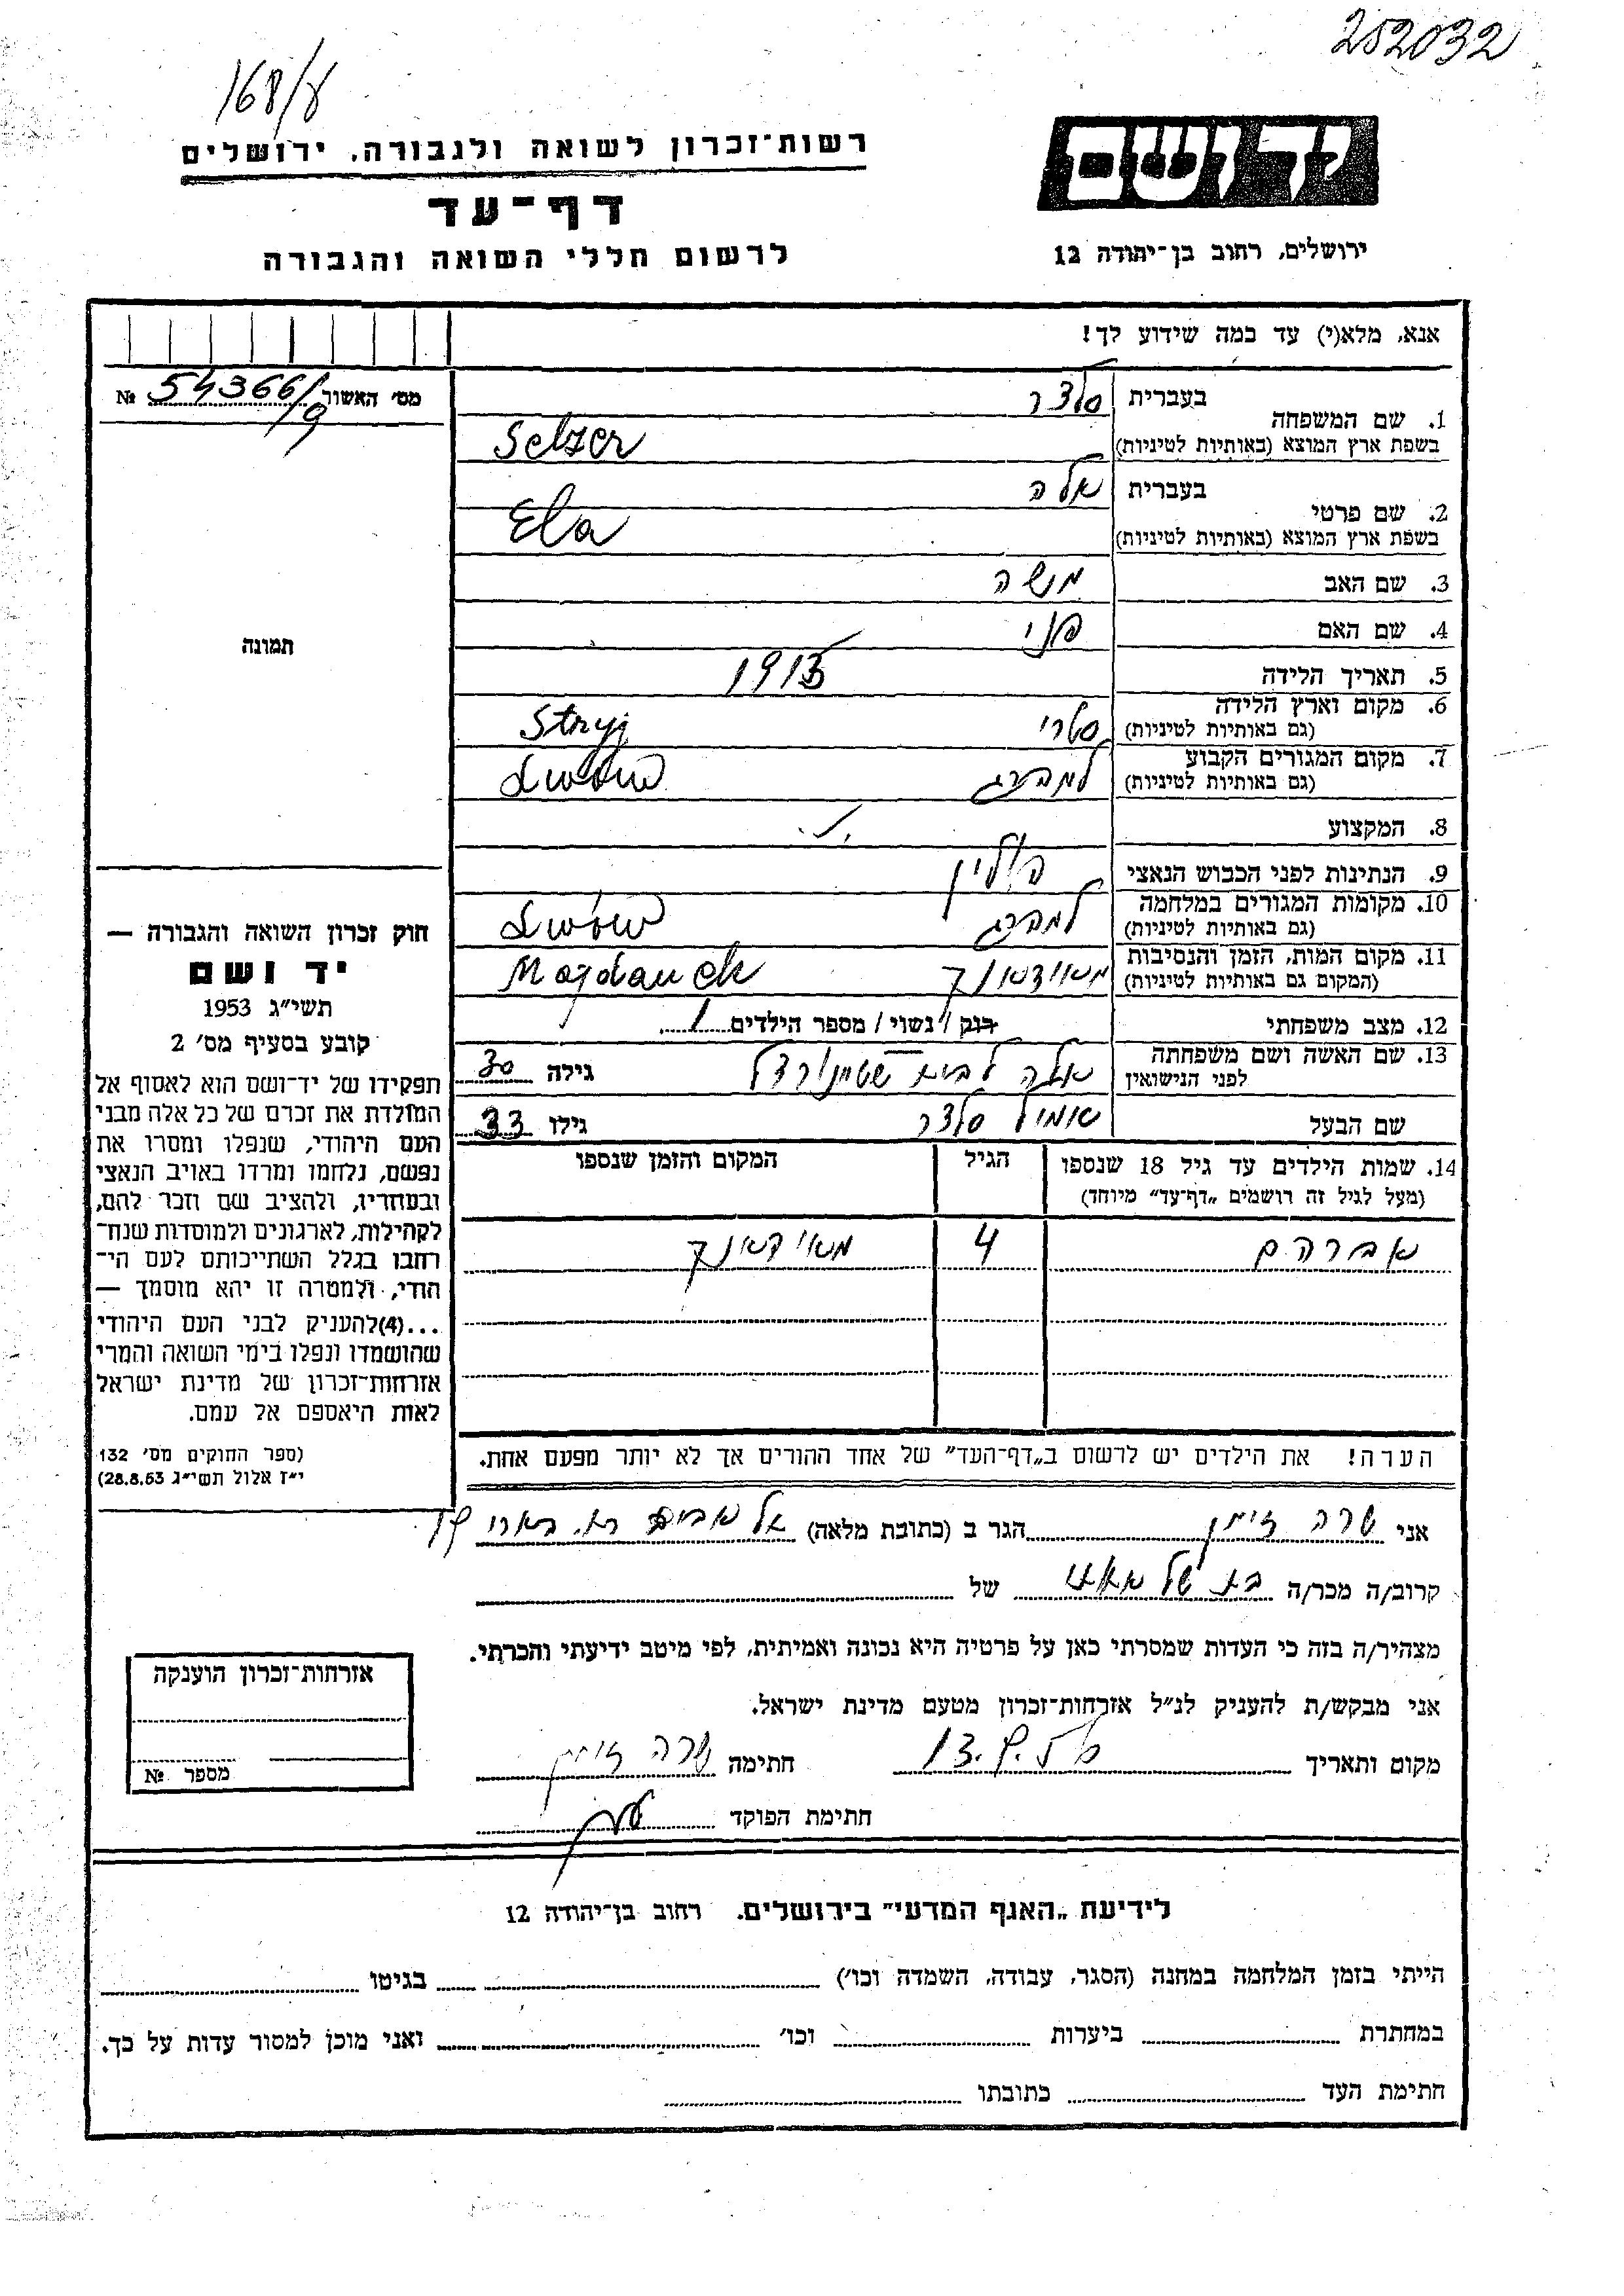 252032
168/
רשות־זכרון לשואה ולגבורה, ירושלים
דף־עד
לרשום חללי השואה והגבורה
יד ושם
ירושלים, רחוב בן־יהודה 12
אנא, מלא(י) עד כמה שידוע לך!
מס׳ האשור 54366/9 №
תמונה
1. שם המשפחה בעברית סלצר
בשפת ארץ המוצא (באותיות לטיניות) Selzer
2. שם פרטי בעברית אלה
בשפת ארץ המוצא (באותיות לטיניות) Ela
3. שם האב משה
4. שם האם פני
5. תאריך הלידה 1913
6. מקום וארץ הלידה סטרי Stryj
(גם באותיות לטיניות)
7. מקום המגורים הקבוע למברג Lwów
(גם באותיות לטיניות)
8. המקצוע
9. הנתינות לפני הכבוש הנאצי פולין
10. מקומות המגורים במלחמה למברג Lwów
(גם באותיות לטיניות)
11. מקום המות, הזמן והנסיבות מאידאנק Majdanek
(המקום גם באותיות לטיניות)
12. מצב משפחתי רוק / נשוי / מספר הילדים 1
13. שם האשה ושם משפחתה אלה לבית גילה 30
לפני הנישואין
שם הבעל שמואל סלצר גילו 33
14. שמות הילדים עד גיל 18 שנספו הגיל המקום והזמן שנספו
(מעל לגיל זה רושמים „דף־עד״ מיוחד)
אברהם 4 מאידאנק
הערה! את הילדים יש לרשום ב„דף־העד״ של אחד ההורים אך לא יותר מפעם אחת.
חוק זכרון השואה והגבורה —
יד ושם
תשי״ג 1953
קובע בסעיף מס׳ 2
תפקידו של יד־ושם הוא לאסוף אל
המולדת את זכרם של כל אלה מבני
העם היהודי, שנפלו ומסרו את
נפשם, נלחמו ומרדו באויב הנאצי
ובעוזריו, ולהציב שם וזכר להם,
לקהילות, לארגונים ולמוסדות שנח־
רחבו בגלל השתייכותם לעם הי־
הודי, ולמטרה זו יהא מוסמך —
...(4)להעניק לבני העם היהודי
שהושמדו ונפלו בימי השואה והמרי
אזרחות־זכרון של מדינת ישראל
לאות היאספם אל עמם.
(ספר החוקים מס׳ 132
י״ז אלול תשי״ג 28.8.53)
אני שרה זימן הגר ב (כתובת מלאה) תל אביב רח.
קרוב/ה מכר/ה בת של של
מצהיר/ה בזה כי העדות שמסרתי כאן על פרטיה היא נכונה ואמיתית, לפי מיטב ידיעתי והכרתי.
אני מבקש/ת להעניק לנ״ל אזרחות־זכרון מטעם מדינת ישראל.
מקום ותאריך חתימה שרה זימן
חתימת הפוקד
אזרחות־זכרון הוענקה
מספר №
לידיעת „האגף המדעי״ בירושלים, רחוב בן־יהודה 12
הייתי בזמן המלחמה במחנה (הסגר, עבודה, השמדה וכו׳) בגיטו
במחתרת ביערות וכו׳ ואני מוכן למסור עדות על כך.
חתימת העד כתובתו